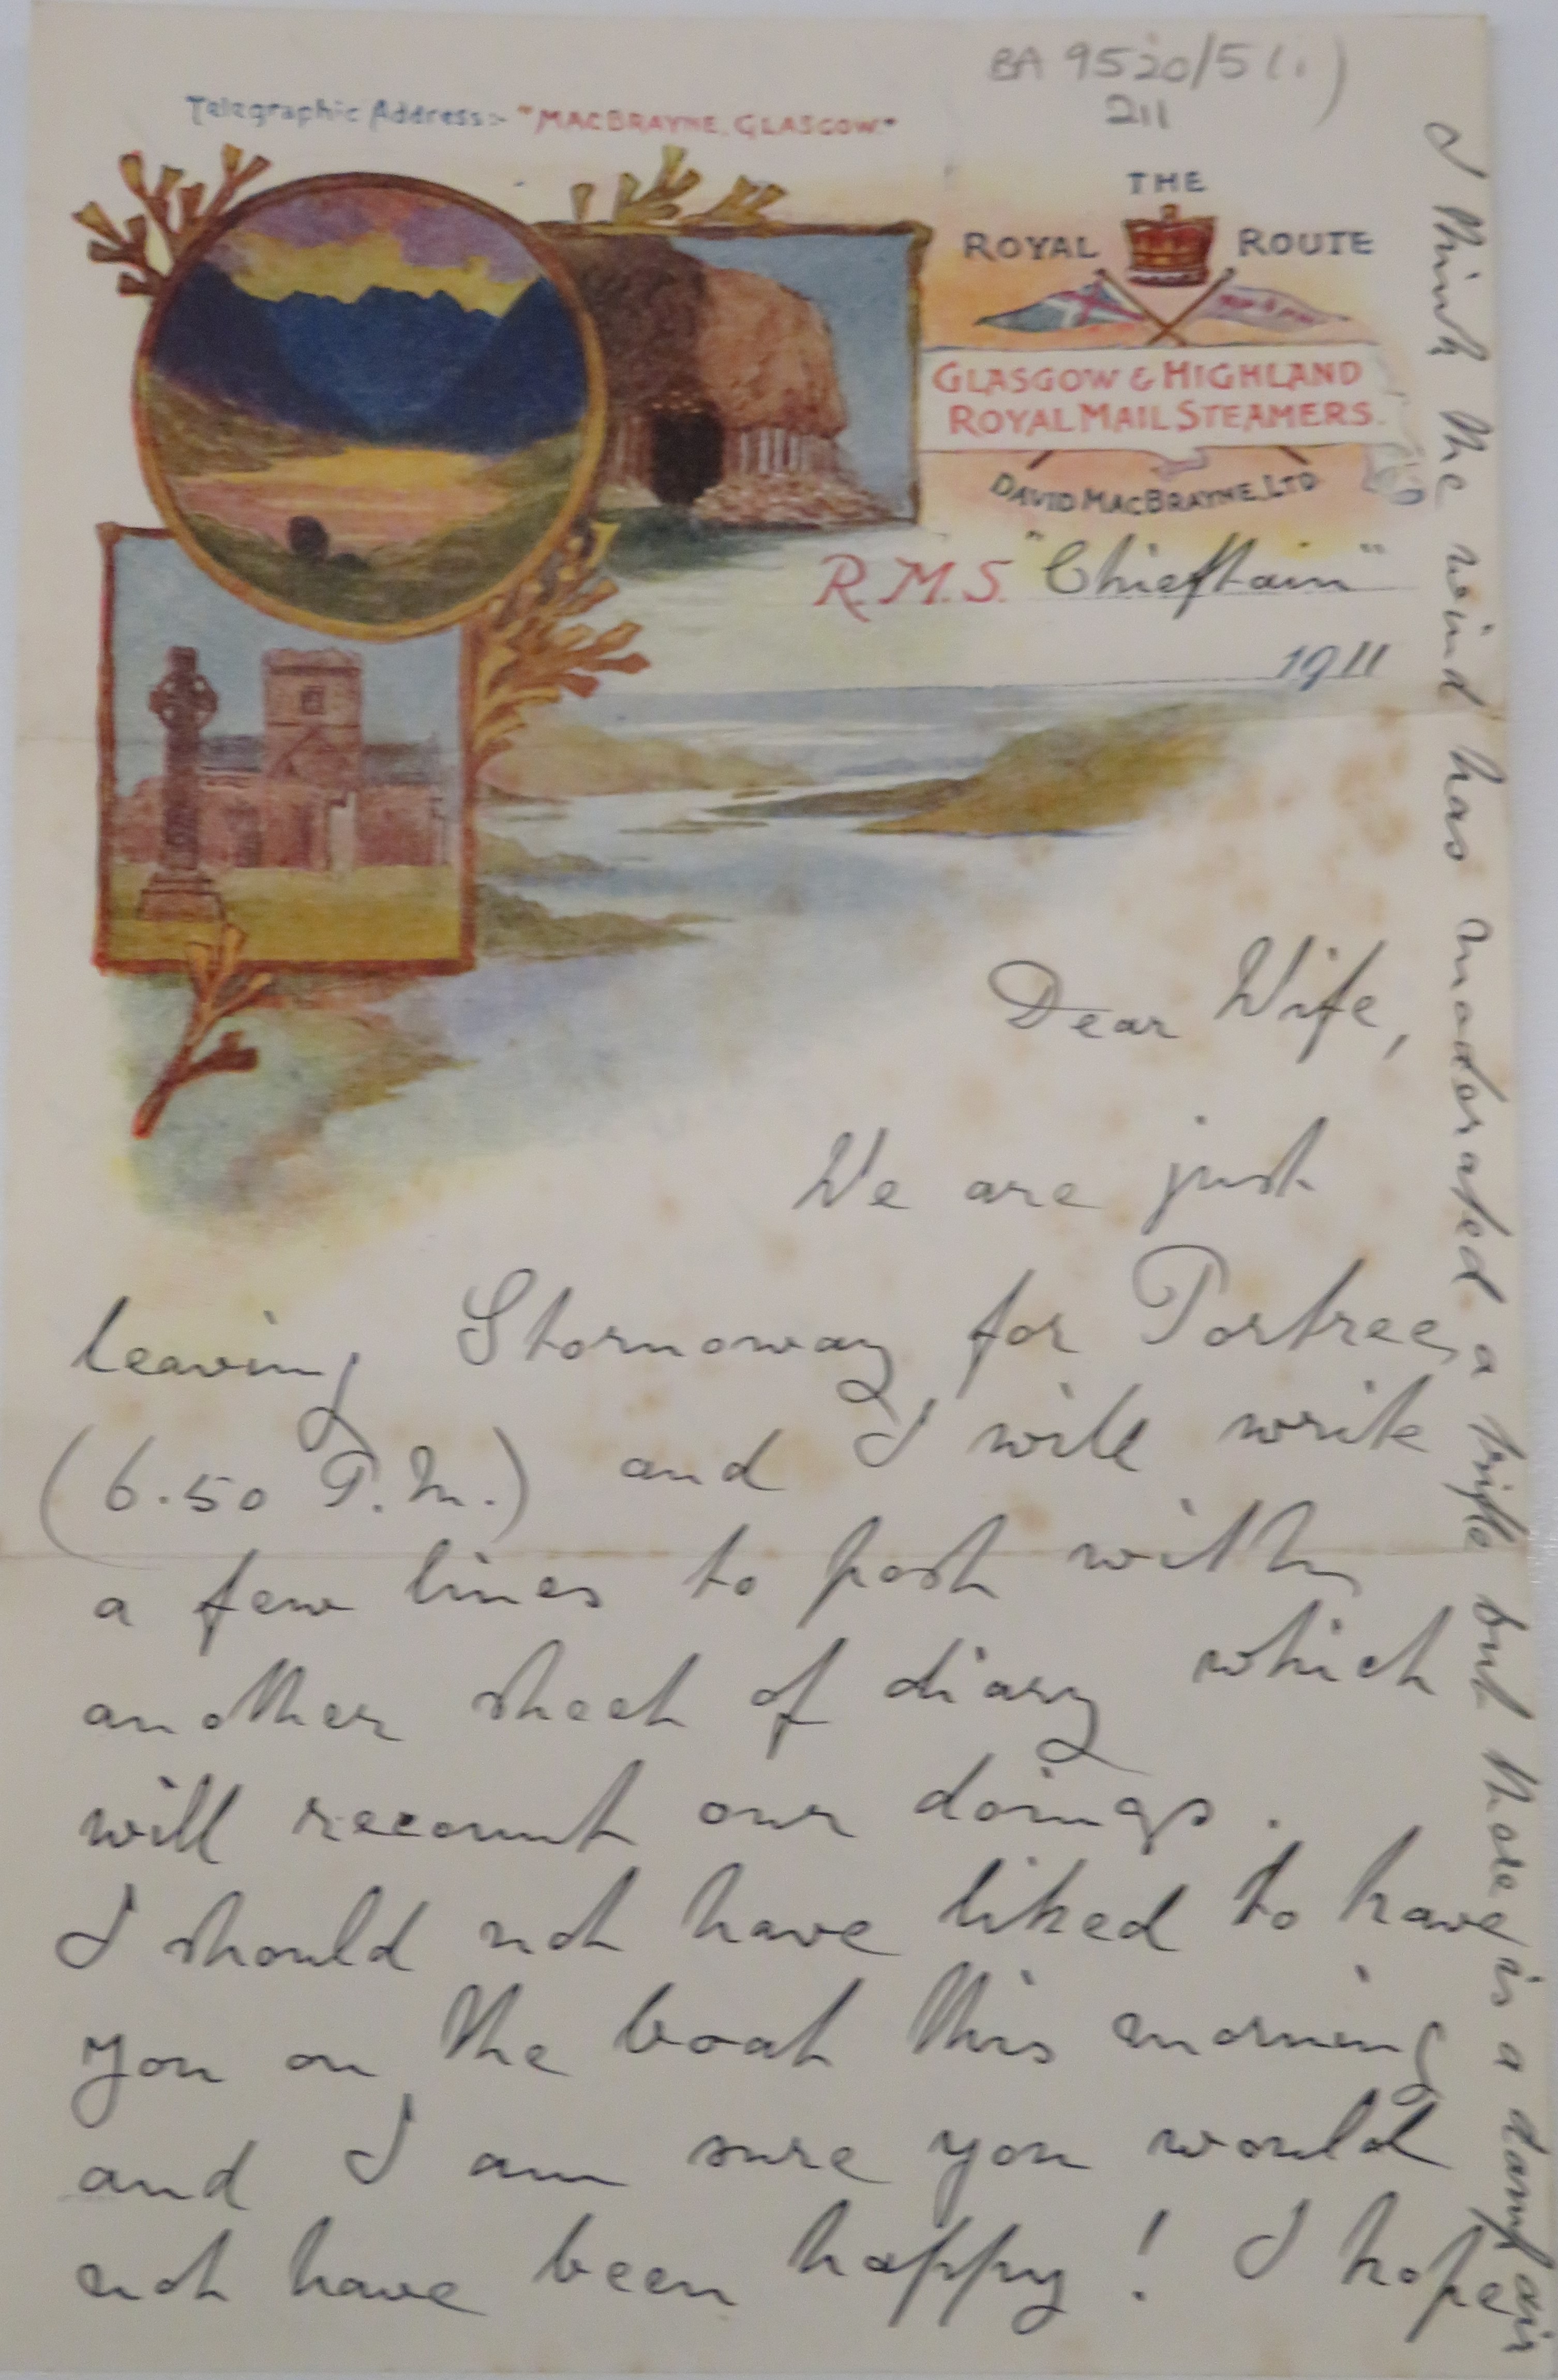 BA 9520/5(i)
211
Telegraphic Address:- "MACBRAYNE, GLASGOW."
THE
ROYAL ROUTE
GLASGOW & HIGHLAND
ROYAL MAIL STEAMERS.
DAVID MACBRAYNE, LTD
R.M.S. "Chieftain"
1911
Dear Wife,
We are just
leaving Stornoway for Portree,
(6.50 P.M.) and I will write
a few lines to post with
another sheet of diary which
will recount our doings.
I should not have liked to have
you on the boat this morning
and I am sure you would
not have been happy! I hope
I think the wind has moderated a trifle but there is a damp air